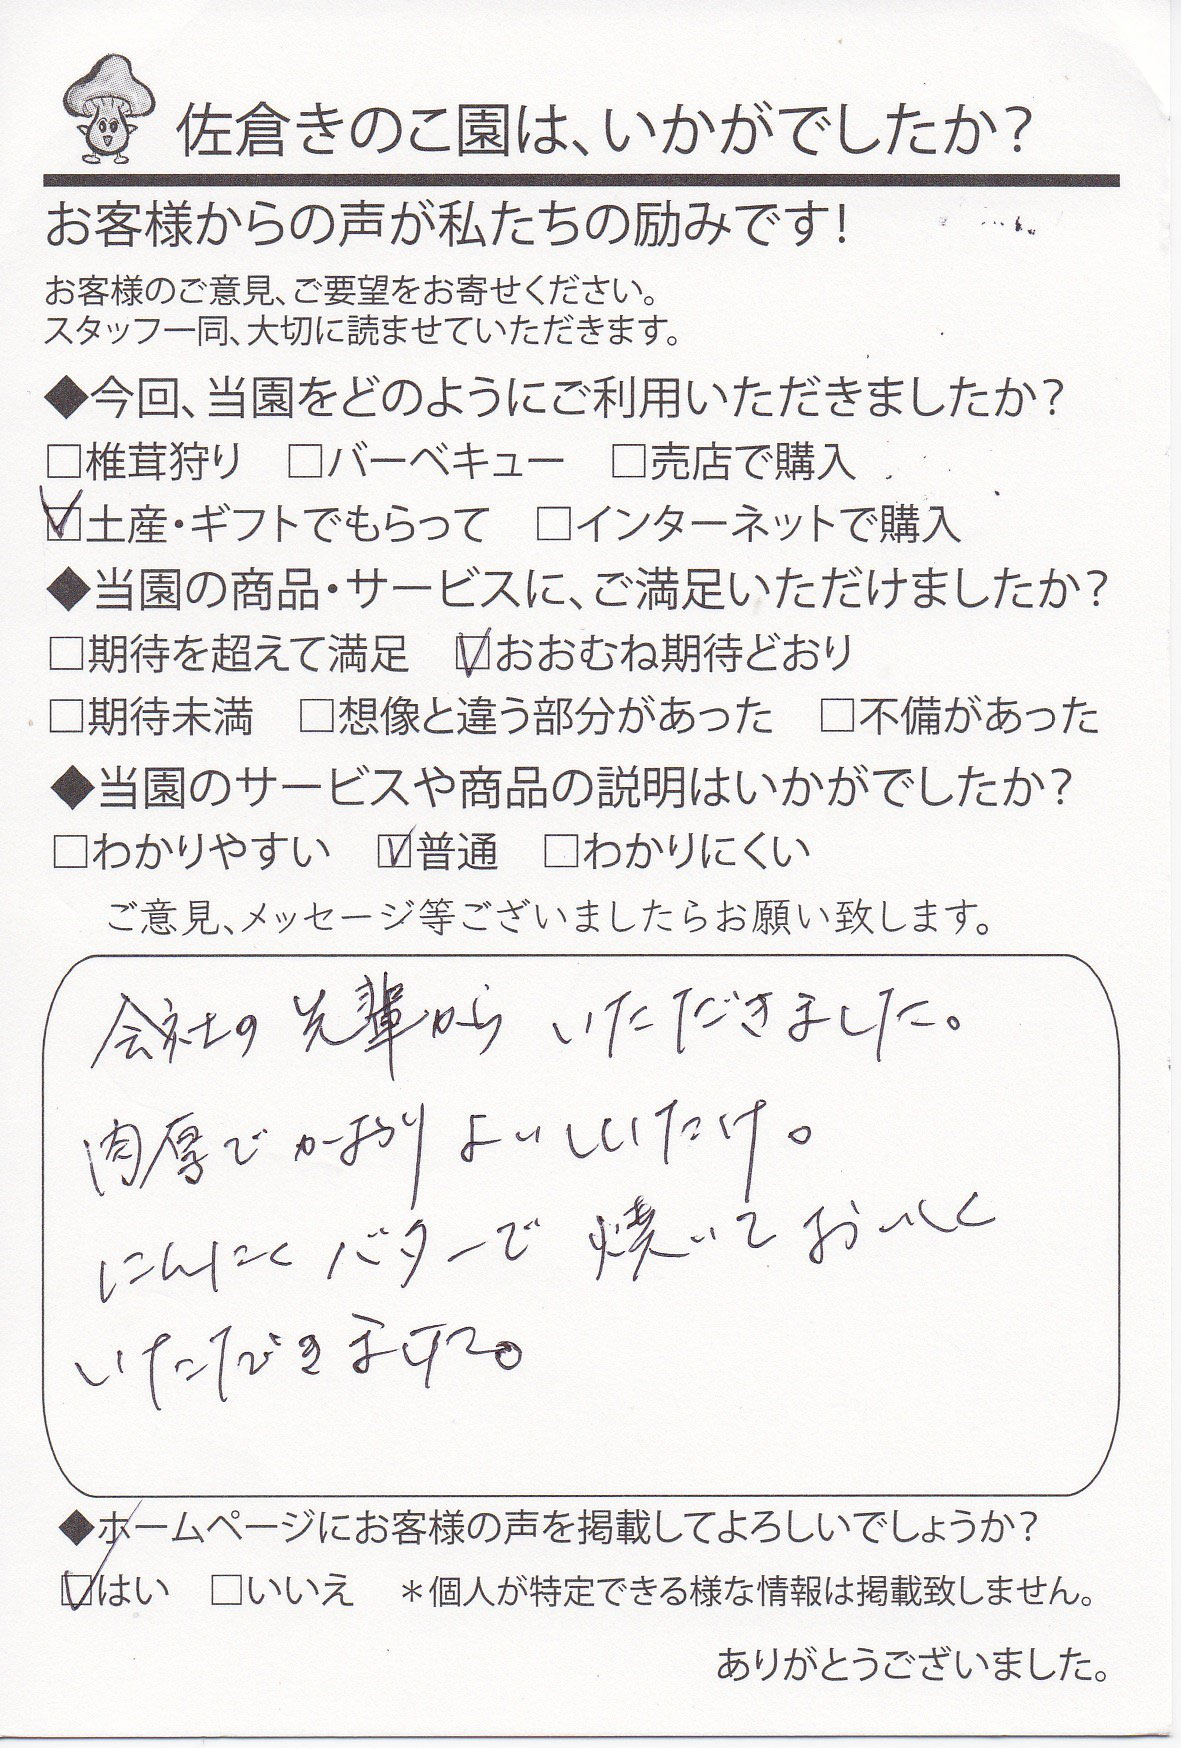 佐倉きのこ園は、いかがでしたか?
お客様からの声が私たちの励みです!
お客様のご意見、ご要望をお寄せください。
スタッフ一同、大切に読ませていただきます。
◆今回、当園をどのようにご利用いただきましたか?
□椎茸狩り □バーベキュー □売店で購入
☑土産・ギフトでもらって □インターネットで購入
◆当園の商品・サービスに、ご満足いただけましたか?
□期待を超えて満足 ☑おおむね期待どおり
□期待未満 □想像と違う部分があった □不備があった
◆当園のサービスや商品の説明はいかがでしたか?
□わかりやすい ☑普通 □わかりにくい
ご意見、メッセージ等ございましたらお願い致します。
会社の先輩からいただきました。
肉厚でかおりよいしいたけ。
にんにくバターで焼いておいしく
いただきます。
◆ホームページにお客様の声を掲載してよろしいでしょうか?
☑はい □いいえ *個人が特定できる様な情報は掲載致しません。
ありがとうございました。